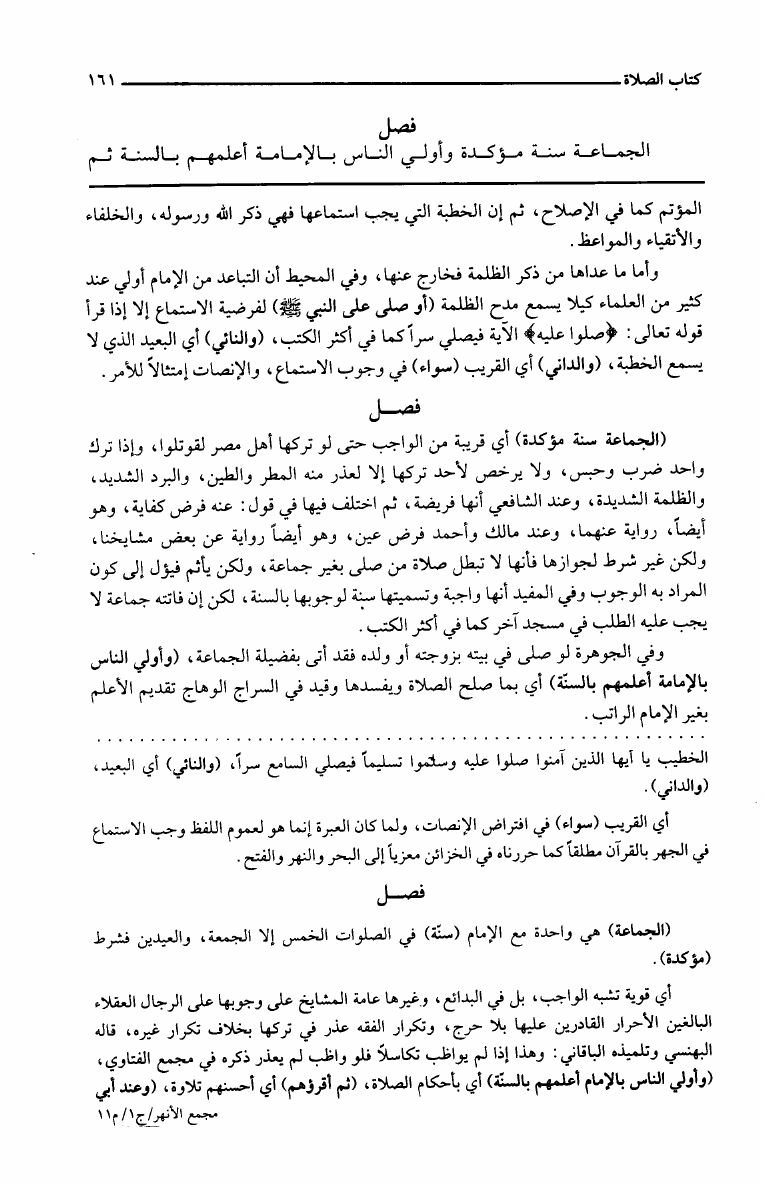 كتاب الصلاة ١٦١
فصل
الجماعة سنة مؤكدة وأولي الناس بالإمامة أعلمهم بالسنة ثم
المؤتم كما في الإصلاح، ثم إن الخطبة التي يجب استماعها فهي ذكر الله ورسوله، والخلفاء
والأتقياء والمواعظ.
وأما ما عداها من ذكر الظلمة فخارج عنها، وفي المحيط أن التباعد من الإمام أولي عند
كثير من العلماء كيلا يسمع مدح الظلمة (أو صلى على النبي ﷺ) لفرضية الاستماع إلا إذا قرأ
قوله تعالى: ﴿صلوا عليه﴾ الآية فيصلي سراً كما في أكثر الكتب، (والنائي) أي البعيد الذي لا
يسمع الخطبة، (والداني) أي القريب (سواء) في وجوب الاستماع، والإنصات إمتثالاً للأمر.
فصل
(الجماعة سنة مؤكدة) أي قريبة من الواجب حتى لو تركها أهل مصر لقوتلوا، وإذا ترك
واحد ضرب وحبس، ولا يرخص لأحد تركها إلا لعذر منه المطر والطين، والبرد الشديد،
والظلمة الشديدة، وعند الشافعي أنها فريضة، ثم اختلف فيها في قول: عنه فرض كفاية، وهو
أيضاً، رواية عنهما، وعند مالك وأحمد فرض عين، وهو أيضاً رواية عن بعض مشايخنا،
ولكن غير شرط لجوازها فأنها لا تبطل صلاة من صلى بغير جماعة، ولكن يأثم فيؤل إلى كون
المراد به الوجوب وفي المفيد أنها واجبة وتسميتها سنة لوجوبها بالسنة، لكن إن فاتته جماعة لا
يجب عليه الطلب في مسجد آخر كما في أكثر الكتب.
وفي الجوهرة لو صلى في بيته بزوجته أو ولده فقد أتى بفضيلة الجماعة، (وأولي الناس
بالإمامة أعلمهم بالسنّة) أي بما صلح الصلاة ويفسدها وقيد في السراج الوهاج تقديم الأعلم
بغير الإمام الراتب.
الخطيب يا آيها الذين آمنوا صلوا عليه وسلّموا تسليماً فيصلي السامع سراً، (والنائي) أي البعيد،
(والداني).
أي القريب (سواء) في افتراض الإنصات، ولما كان العبرة إنما هو لعموم اللفظ وجب الاستماع
في الجهر بالقرآن مطلقاً كما حررناه في الخزائن معزياً إلى البحر والنهر والفتح.
فصل
(الجماعة) هي واحدة مع الإمام (سنّة) في الصلوات الخمس إلا الجمعة، والعيدين فشرط
(مؤكدة).
أي قوية تشبه الواجب، بل في البدائع، وغيرها عامة المشايخ على وجوبها على الرجال العقلاء
البالغين الأحرار القادرين عليها بلا حرج، وتكرار الفقه عذر في تركها بخلاف تكرار غيره، قاله
البهنسي وتلميذه الباقاني: وهذا إذا لم يواظب تكاسلاً فلو واظب لم يعذر ذكره في مجمع الفتاوي،
(وأولي الناس بالإمام أعلمهم بالسنّة) أي بأحكام الصلاة، (ثم أقرؤهم) أي أحسنهم تلاوة، (وعند أبي
مجمع الأنهر/ج١/م١١